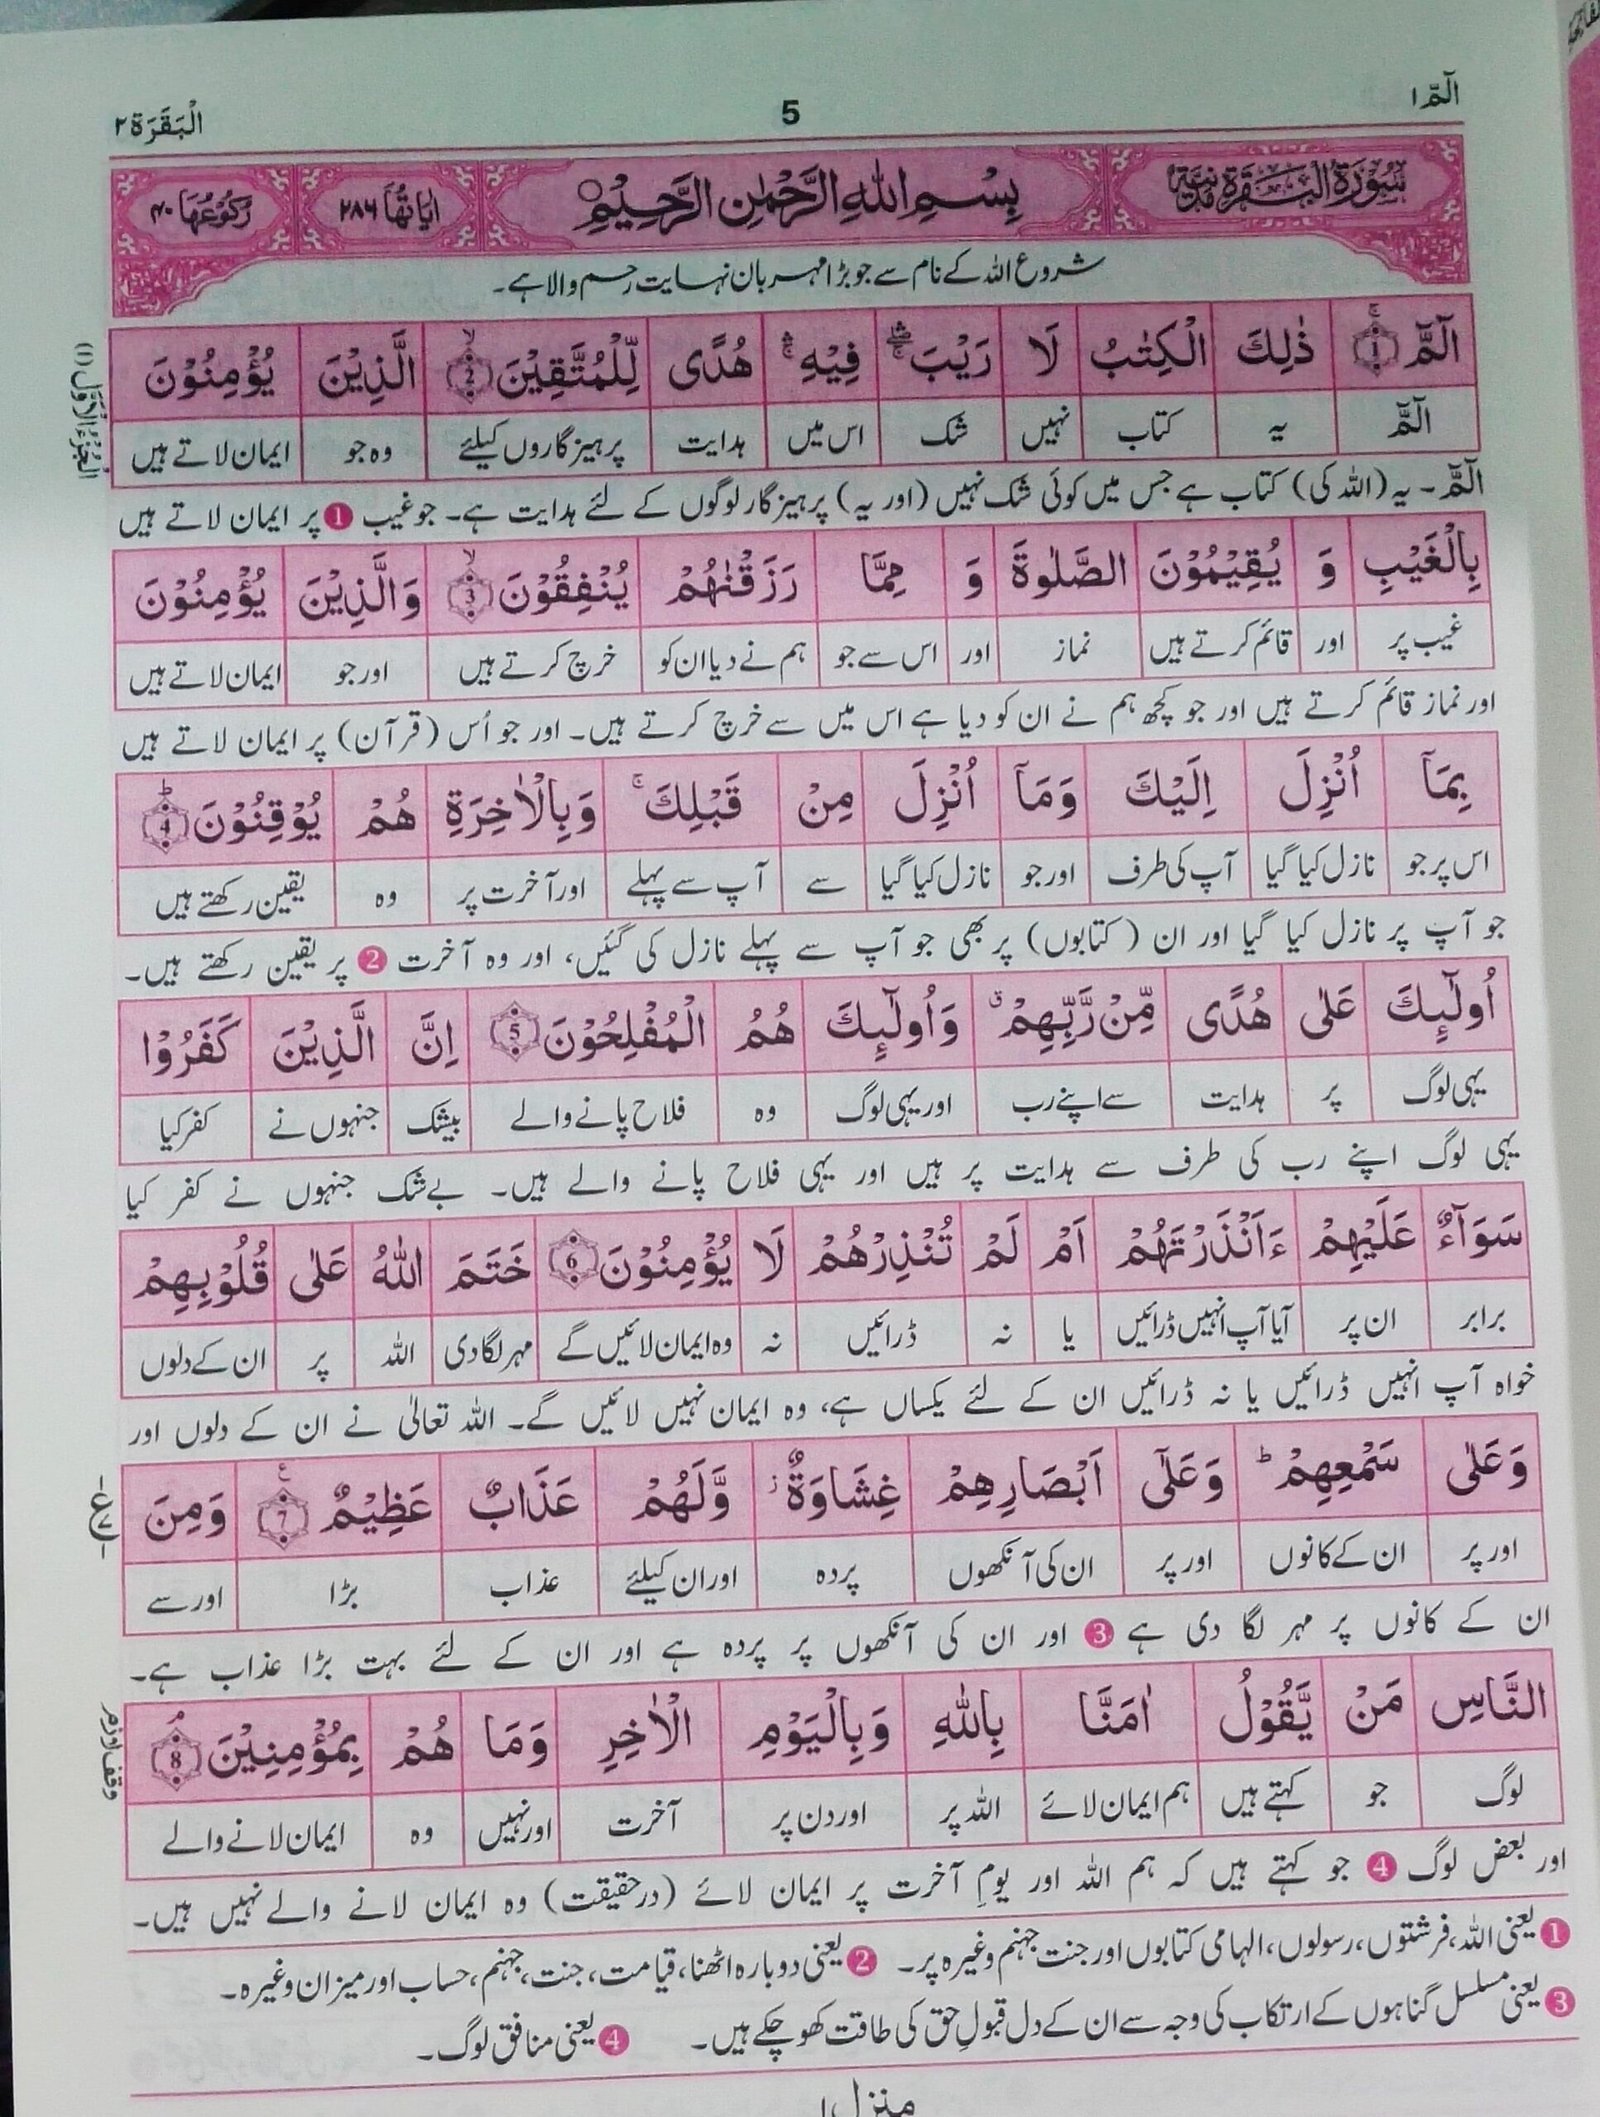 الٓمّٓ ١
5
الْبَقَرَة ٢
سُوْرَةُ الْبَقَرَةِ مَدَنِيَّةٌ
بِسْمِ اللّٰهِ الرَّحْمٰنِ الرَّحِيْمِ
اٰيَاتُهَا ٢٨٦
رُكُوْعُهَا ٤٠
شروع اللہ کے نام سے جو بڑا مہربان نہایت رحم والا ہے۔
الٓمّٓ ۚ 1 ذٰلِكَ الْكِتٰبُ لَا رَيْبَ ۛۖ فِيْهِ ۛۚ هُدًى لِّلْمُتَّقِيْنَ ۙ 2 الَّذِيْنَ يُؤْمِنُوْنَ
الٓمّٓ یہ کتاب نہیں شک اس میں ہدایت پرہیزگاروں کیلئے وہ جو ایمان لاتے ہیں
الٓمّٓ۔ یہ (اللہ کی) کتاب ہے جس میں کوئی شک نہیں (اور یہ) پرہیزگار لوگوں کے لئے ہدایت ہے۔ جو غیب ❶ پر ایمان لاتے ہیں
بِالْغَيْبِ وَ يُقِيْمُوْنَ الصَّلٰوةَ وَ مِمَّا رَزَقْنٰهُمْ يُنْفِقُوْنَ ۙ 3 وَالَّذِيْنَ يُؤْمِنُوْنَ
غیب پر اور قائم کرتے ہیں نماز اور اس سے جو ہم نے دیا ان کو خرچ کرتے ہیں اور جو ایمان لاتے ہیں
اور نماز قائم کرتے ہیں اور جو کچھ ہم نے ان کو دیا ہے اس میں سے خرچ کرتے ہیں۔ اور جو اُس (قرآن) پر ایمان لاتے ہیں
بِمَآ اُنْزِلَ اِلَيْكَ وَمَآ اُنْزِلَ مِنْ قَبْلِكَ ۚ وَبِالْاٰخِرَةِ هُمْ يُوْقِنُوْنَ ؕ 4
اس پر جو نازل کیا گیا آپ کی طرف اور جو نازل کیا گیا سے آپ سے پہلے اور آخرت پر وہ یقین رکھتے ہیں
جو آپ پر نازل کیا گیا اور ان (کتابوں) پر بھی جو آپ سے پہلے نازل کی گئیں، اور وہ آخرت ❷ پر یقین رکھتے ہیں۔
اُولٰٓئِكَ عَلٰى هُدًى مِّنْ رَّبِّهِمْ ۗ وَاُولٰٓئِكَ هُمُ الْمُفْلِحُوْنَ 5 اِنَّ الَّذِيْنَ كَفَرُوْا
یہی لوگ پر ہدایت سے اپنے رب اور یہی لوگ وہ فلاح پانے والے بیشک جنہوں نے کفر کیا
یہی لوگ اپنے رب کی طرف سے ہدایت پر ہیں اور یہی فلاح پانے والے ہیں۔ بے شک جنہوں نے کفر کیا
سَوَآءٌ عَلَيْهِمْ ءَاَنْذَرْتَهُمْ اَمْ لَمْ تُنْذِرْهُمْ لَا يُؤْمِنُوْنَ 6 خَتَمَ اللّٰهُ عَلٰى قُلُوْبِهِمْ
برابر ان پر آیا آپ انہیں ڈرائیں یا نہ ڈرائیں نہ وہ ایمان لائیں گے مہر لگا دی اللہ پر ان کے دلوں
خواہ آپ انہیں ڈرائیں یا نہ ڈرائیں ان کے لئے یکساں ہے، وہ ایمان نہیں لائیں گے۔ اللہ تعالیٰ نے ان کے دلوں اور
وَعَلٰى سَمْعِهِمْ ؕ وَعَلٰٓى اَبْصَارِهِمْ غِشَاوَةٌ ز وَّلَهُمْ عَذَابٌ عَظِيْمٌ ۧ 7 وَمِنَ
اور پر ان کے کانوں اور پر ان کی آنکھوں پردہ اور ان کیلئے عذاب بڑا اور سے
ان کے کانوں پر مہر لگا دی ہے ❸ اور ان کی آنکھوں پر پردہ ہے اور ان کے لئے بہت بڑا عذاب ہے۔
النَّاسِ مَنْ يَّقُوْلُ اٰمَنَّا بِاللّٰهِ وَبِالْيَوْمِ الْاٰخِرِ وَمَا هُمْ بِمُؤْمِنِيْنَ ۘ 8
لوگ جو کہتے ہیں ہم ایمان لائے اللہ پر اور دن پر آخرت اور نہیں وہ ایمان لانے والے
اور بعض لوگ ❹ جو کہتے ہیں کہ ہم اللہ اور یومِ آخرت پر ایمان لائے (درحقیقت) وہ ایمان لانے والے نہیں ہیں۔
❶ یعنی اللہ، فرشتوں، رسولوں، الہامی کتابوں اور جنت جہنم وغیرہ پر۔ ❷ یعنی دوبارہ اٹھنا، قیامت، جنت، جہنم، حساب اور میزان وغیرہ۔
❸ یعنی مسلسل گناہوں کے ارتکاب کی وجہ سے ان کے دل قبولِ حق کی طاقت کھو چکے ہیں۔ ❹ یعنی منافق لوگ۔
منزل ١
اَلْجُزْءُ الْاَوَّل (١)
وقف لازم